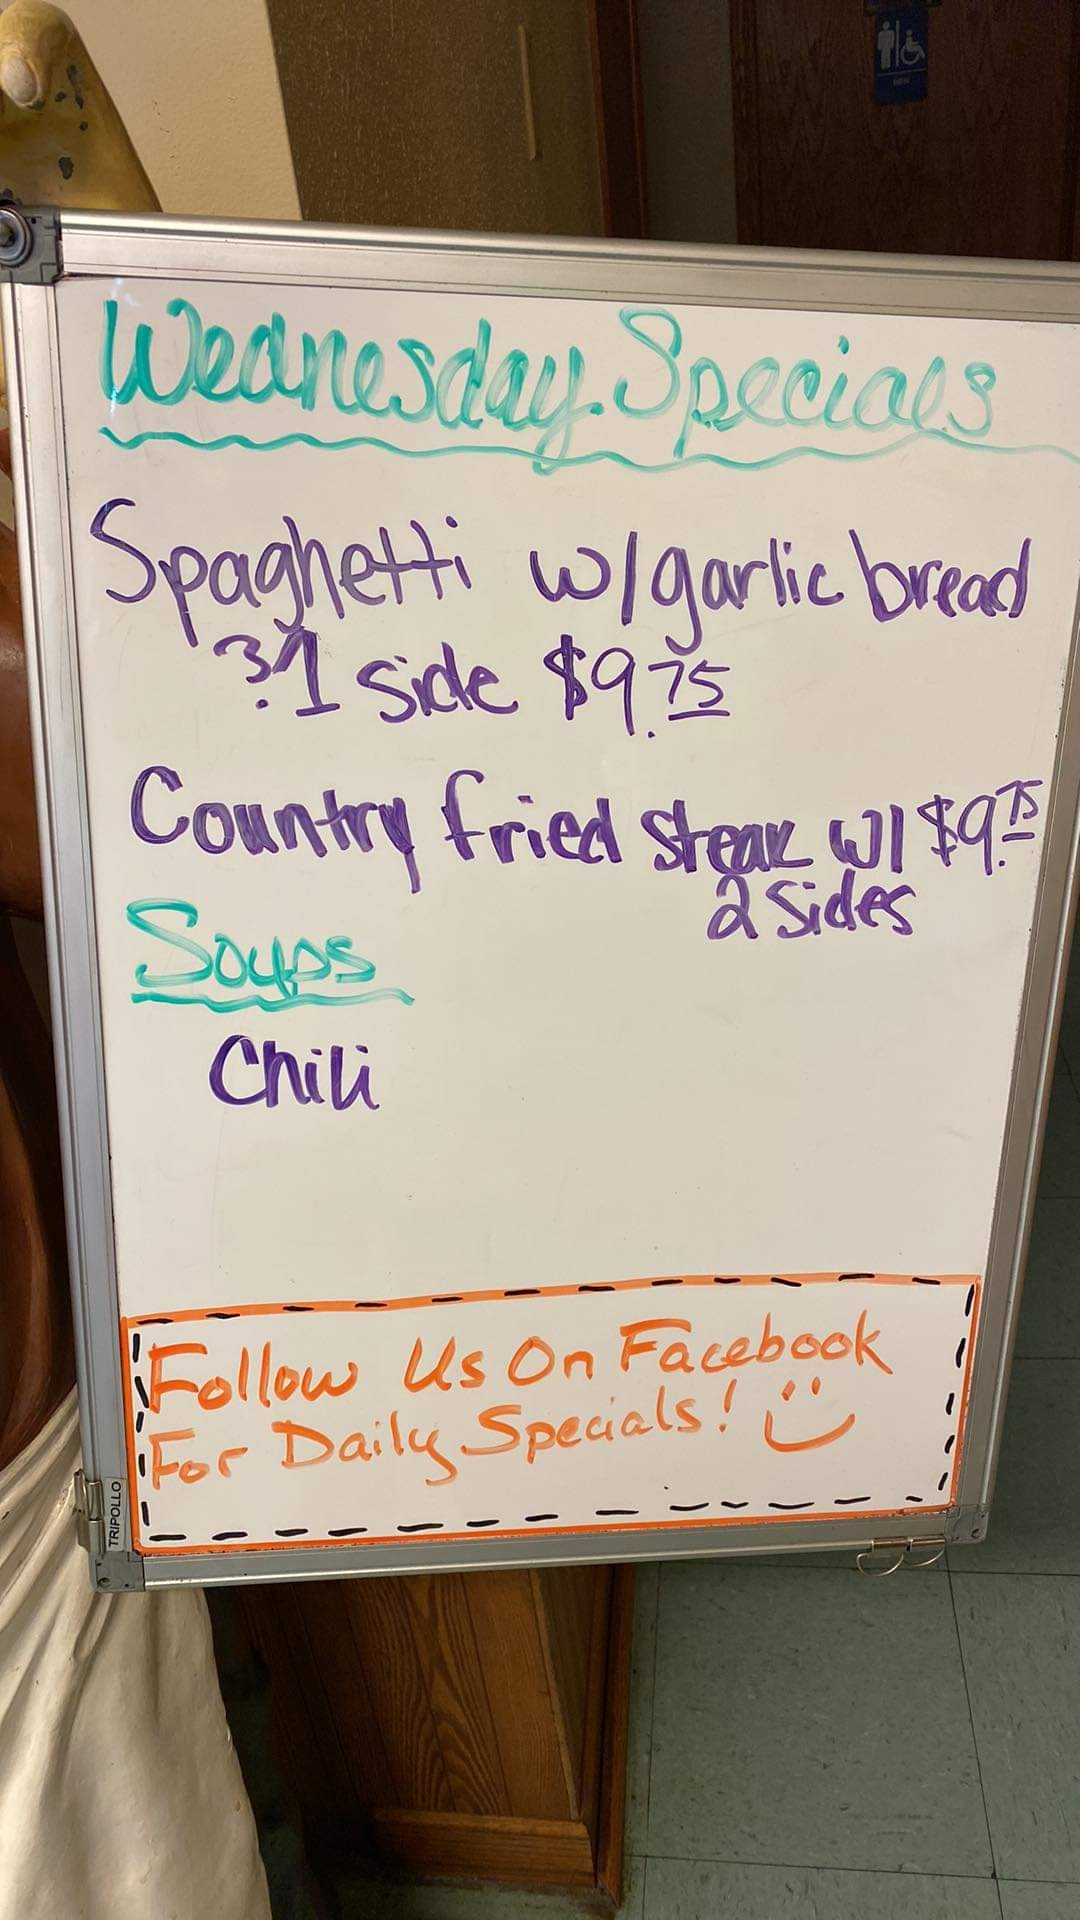 Wednesday Specials
Spaghetti w/garlic bread
& 1 side $9.75
Country fried steak w/ $9.75
2 sides
Soups
Chili
Follow Us On Facebook
For Daily Specials!
TRIPOLLO